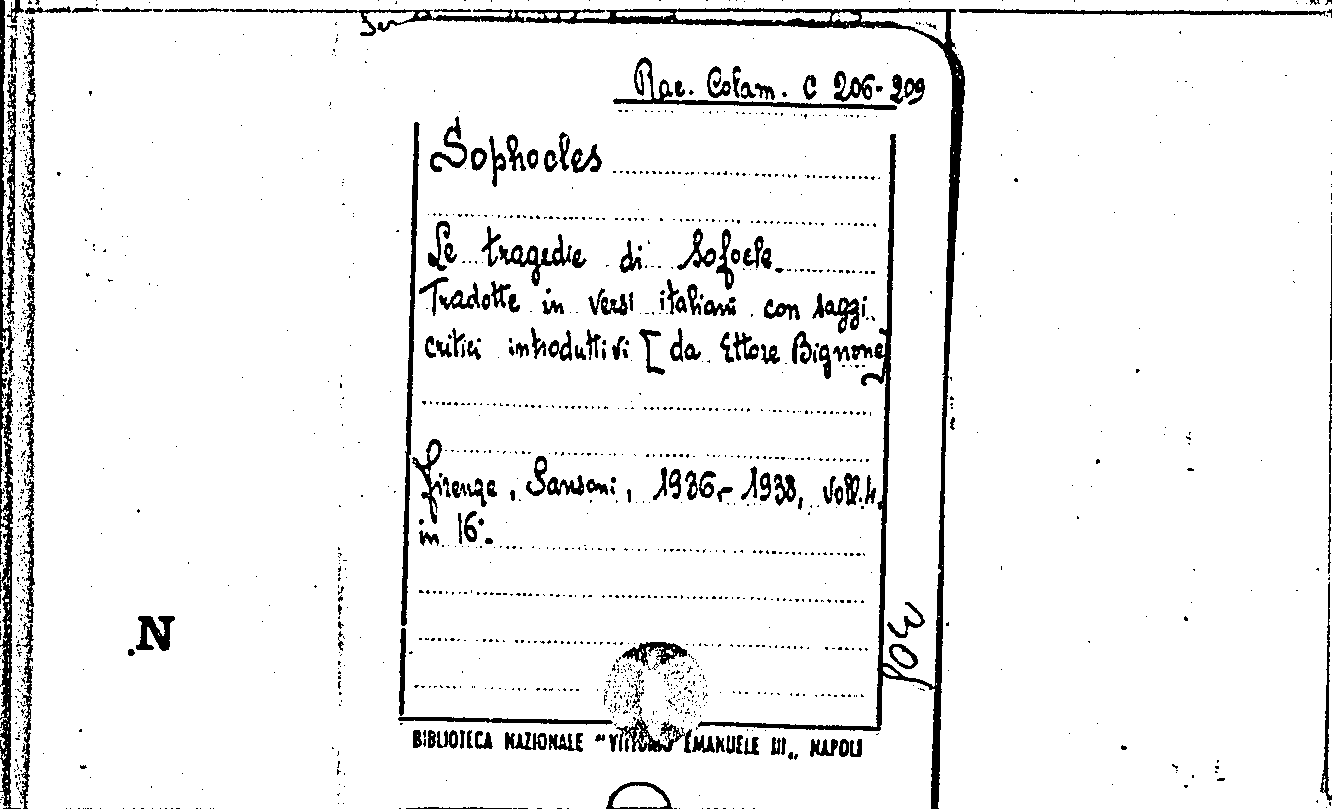 Rac. Cofam. C 206-209
Sophocles
Le tragedie di Sofocle.
Tradotte in versi italiani con saggi
critici introduttivi [da Ettore Bignone]
Firenze, Sansoni, 1936-1938, voll. 4.
in 16°.
.N
BIBLIOTECA NAZIONALE "VITTORIO EMANUELE III„ NAPOLI